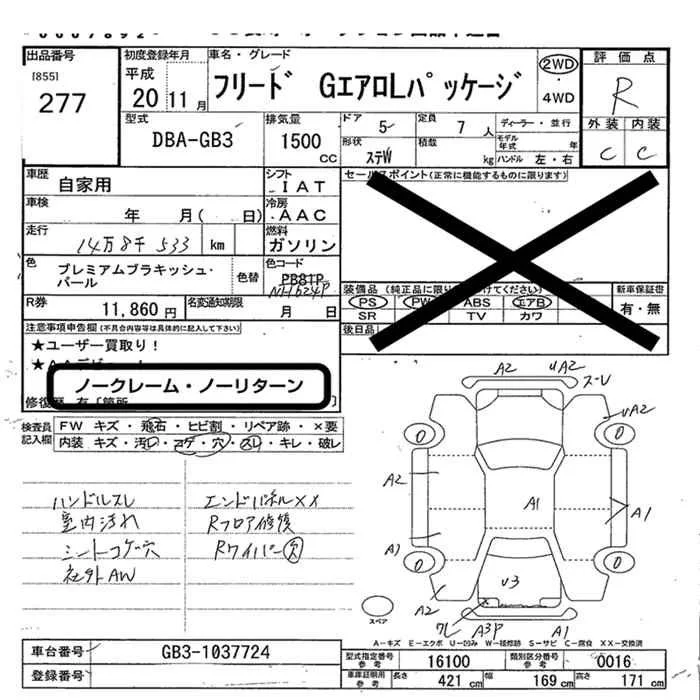 出品番号
[855]
277
初度登録年月
平成
20 11月
車名・グレード
フリード GエアロLパッケージ
2WD
・
4WD
評価点
R
外装 内装
C C
型式
DBA-GB3
排気量
1500
CC
ドア 5
定員 7 人
ディーラー・並行
形状 ステW
積載 kg
モデル年式 年
ハンドル 左・右
車歴
自家用
シフト
IAT
セールスポイント(正常に機能するものに限ります)
車検
年 月( 日)
冷房
AAC
走行
14万8千533 km
燃料
ガソリン
色
プレミアムブラキッシュ・
パール
色替
色コード
PB81P
NH624P
装備品(純正品に限り
けてください)
PS PW ABS エアB
SR TV カワ
新車保証書
有・無
R券
11,860円
名変通知期限
月 日
後日品
注意事項申告欄(不具合内容等は具体的に記入して下さい)
★ユーザー買取り!
ノークレーム・ノーリターン
修復歴 有[箇所
検査員
記入欄
FW キズ・飛石・ヒビ割・リペア跡・×要
内装 キズ・汚レ・コゲ・穴・スレ・キレ・破レ
ハンドルスレ
室内汚れ
シートコゲ穴
社外AW
エンドパネルXX
Rフロア修復
Rワイパー欠
A2 UA2
ズーレ
UA2
A2
A1
A1
A1
A2
U3
ワレ A3P A1
スペア
A-キズ E-エクボ U-凹み W-補修跡 S-サビ C-腐食 XX-交換済
車台番号
GB3-1037724
登録番号
型式指定番号
参考
16100
類別区分番号
参考
0016
車庫証明用
参考
長さ 421 cm
幅 169 cm
高さ 171 cm